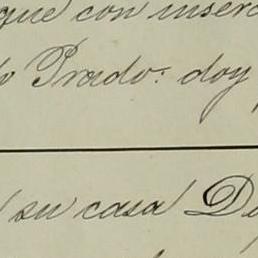 que con inser
Prado: doy
su casa D